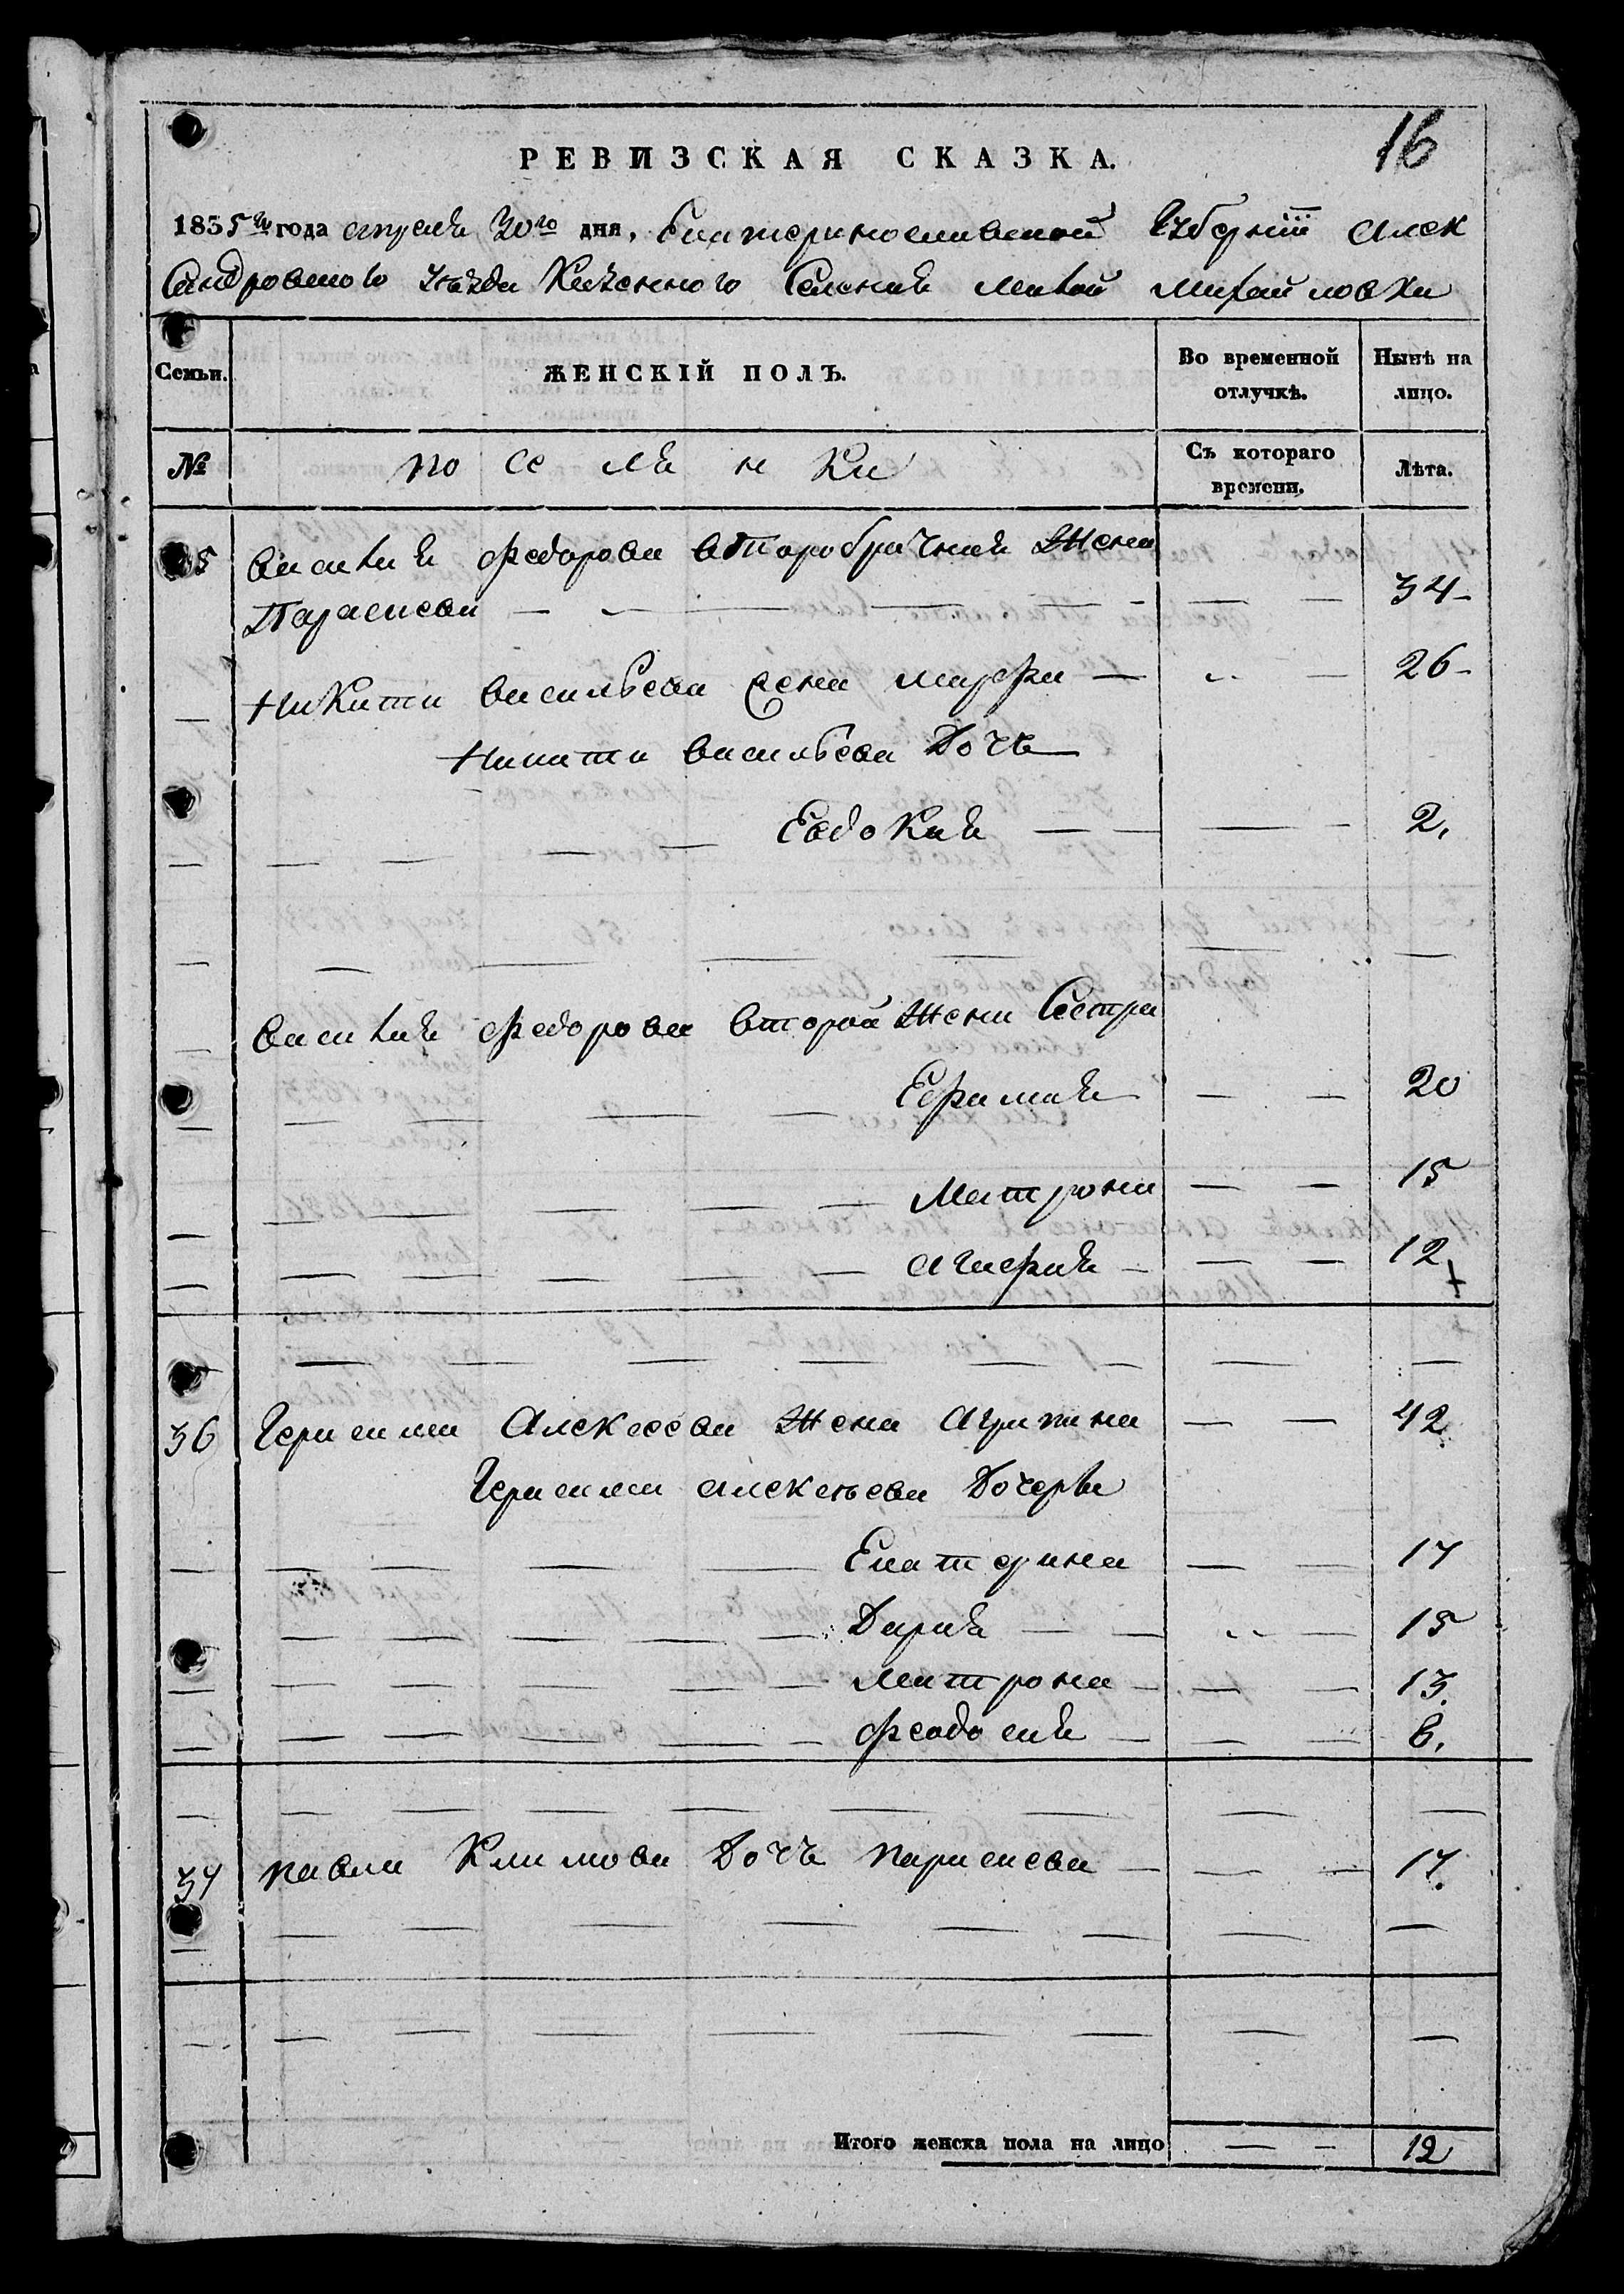 16
РЕВИЗСКАЯ СКАЗКА.
1835го года апреля 30го дня, Екатеринославской Губернiи Алек
сандровского уезда Казенного Селения Малой Михайловки
Семьи.
ЖЕНСКIЙ ПОЛЪ.
Во временной отлучкѣ.
Нынѣ на лицо.
№
поселянки
Съ котораго времени.
Лѣта.
35 Василия Федорова второбрачная Жена
Параскева 34
Никиты Васильева жена Марфа 26
Никиты Васильева Дочь
Евдокия 2.
Василия Федорова второй Жены Сестры
Ефимия 20
Матрона 15
Агафия 12
36 Герасима Алексеева Жена Агрипина 42
Герасима Алексеева Дочери
Екатерина 17
Дария 15
Матрона 13.
Феодосия 6.
37 Павла Климова Дочь Параскева 17.
Итого женска пола на лицо 12